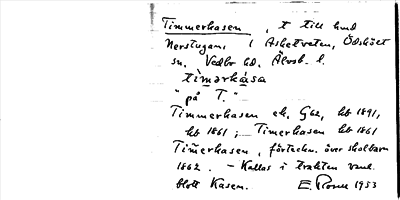 Timmerkasen, t till hmd
Nerstugan, i Askekveten, Ödskölt
sn, Vedbo hd, Älvsb. l.
tìmərkàsa
"på T."
Timmerkasen ek. G62, hb 1891,
hb 1861; Timerkasen hb 1861
Tim̄erkasen, förteckn. över skolbarn
1862. – Kallas i trakten vanl.
blott Kasen. E. 1953